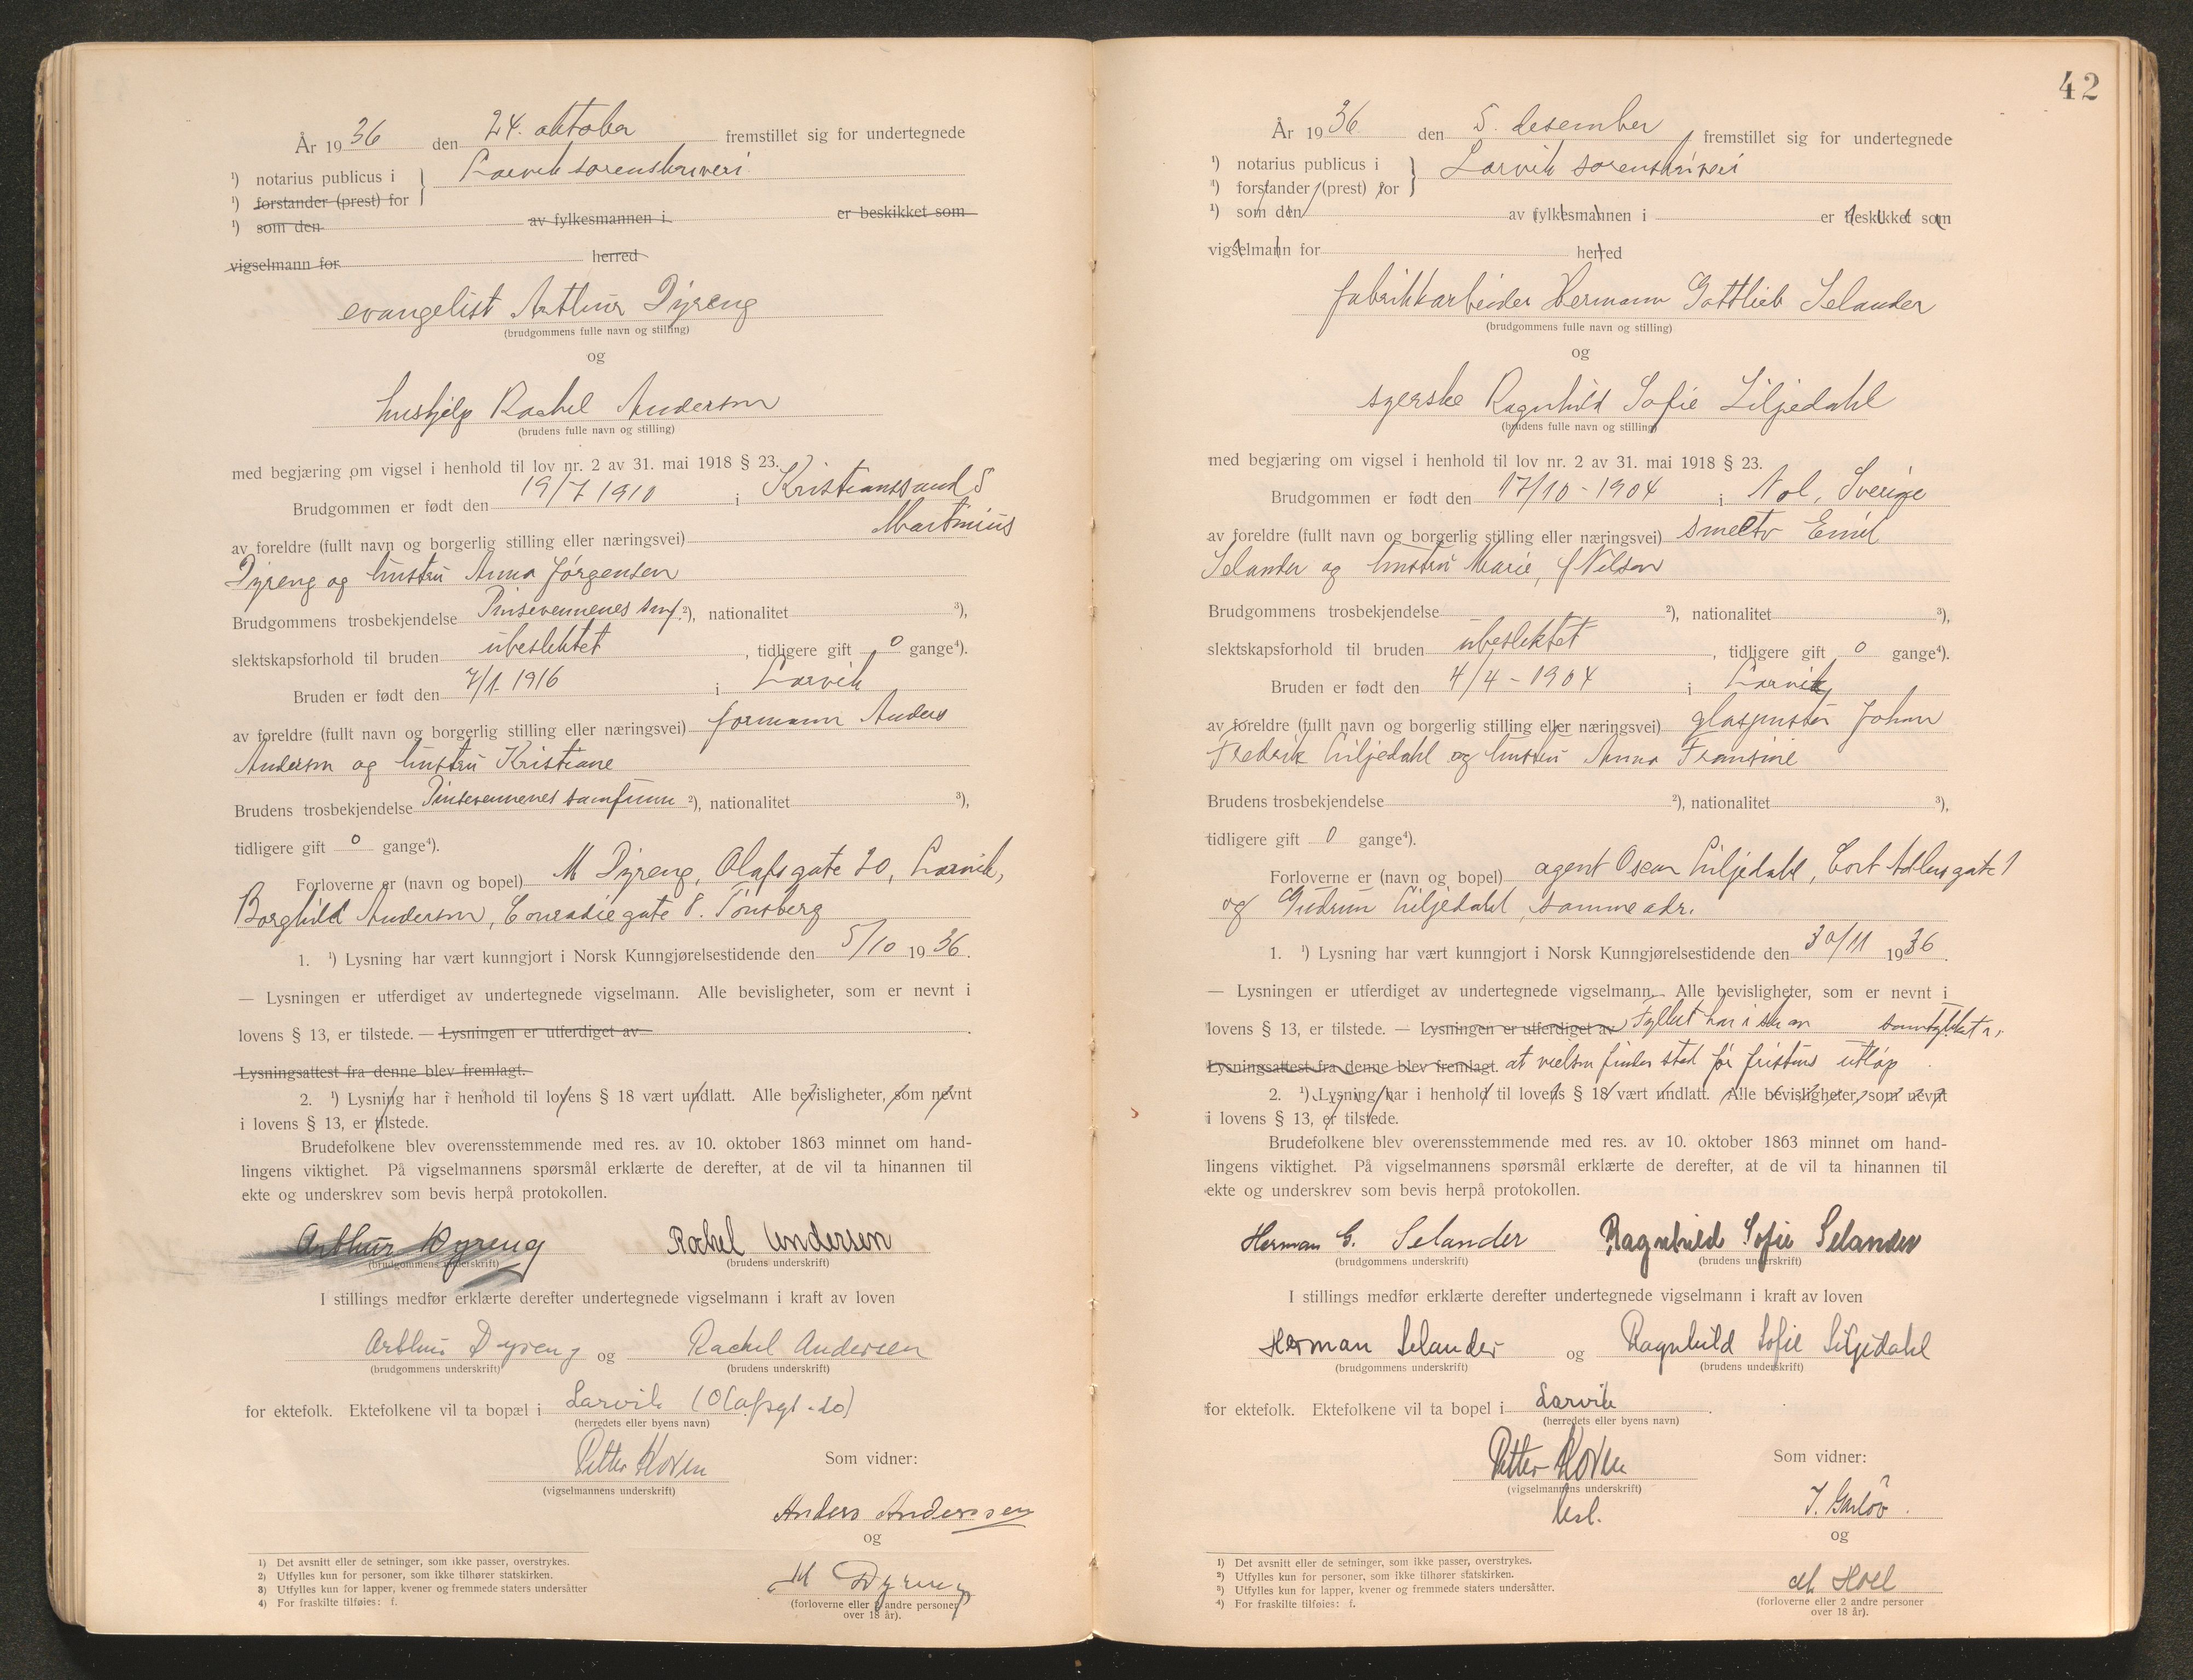 År 1936 den 24. oktober fremstillet sig for undertegnede
¹) notarius publicus i } Larvik sorenskriveri
¹) forstander (prest) for
¹) som den av fylkesmannen i er beskikket som
vigselmann for herred
evangelist Arthur Dyreng
(brudgommens fulle navn og stilling)
og
hushjelp Rachel Andersen
(brudens fulle navn og stilling)
med begjæring om vigsel i henhold til lov nr. 2 av 31. mai 1918 § 23.
Brudgommen er født den 19/7 1910 i Kristianssand S
av foreldre (fullt navn og borgerlig stilling eller næringsvei) Martinius
Dyreng og hustru Anna Jørgensen
Brudgommens trosbekjendelse Pinsevennenes smf. ²), nationalitet ³),
slektskapsforhold til bruden ubeslektet, tidligere gift 0 gange⁴).
Bruden er født den 7/1 1916 i Larvik
av foreldre (fullt navn og borgerlig stilling eller næringsvei) formann Anders
Andersen og hustru Kristiane
Brudens trosbekjendelse Pinsevennenes samfunn ²), nationalitet ³),
tidligere gift 0 gange⁴).
Forloverne er (navn og bopel) M Dyreng, Olafsgate 20, Larvik,
Borghild Andersen, Conradiegate 8. Tønsberg
1. ¹) Lysning har vært kunngjort i Norsk Kunngjørelsestidende den 5/10 1936.
— Lysningen er utferdiget av undertegnede vigselmann. Alle bevisligheter, som er nevnt i
lovens § 13, er tilstede. — Lysningen er utferdiget av
Lysningsattest fra denne blev fremlagt.
2. ¹) Lysning har i henhold til lovens § 18 vært undlatt. Alle bevisligheter, som nevnt
i lovens § 13, er tilstede.
Brudefolkene blev overensstemmende med res. av 10. oktober 1863 minnet om hand-
lingens viktighet. På vigselmannens spørsmål erklærte de derefter, at de vil ta hinannen til
ekte og underskrev som bevis herpå protokollen.
Arthur Dyreng Rachel Andersen
(brudgommens underskrift) (brudens underskrift)
I stillings medfør erklærte derefter undertegnede vigselmann i kraft av loven
Arthur Dyreng og Rachel Andersen
(brudgommens underskrift) (brudens underskrift)
for ektefolk. Ektefolkene vil ta bopæl i Larvik (Olafsgt. 20)
(herredets eller byens navn)
Petter Koren Som vidner:
(vigselmannens underskrift)
Anders Anderssen
og
M Dyreng
(forloverne eller 2 andre personer
over 18 år).
1) Det avsnitt eller de setninger, som ikke passer, overstrykes.
2) Utfylles kun for personer, som ikke tilhører statskirken.
3) Utfylles kun for lapper, kvener og fremmede staters undersåtter
4) For fraskilte tilføies: f.
42
År 1936 den 5. desember fremstillet sig for undertegnede
¹) notarius publicus i } Larvik sorenskriveri
¹) forstander (prest) for
¹) som den av fylkesmannen i er beskikket som
vigselmann for herred
fabrikkarbeider Hermann Gottlieb Selander
(brudgommens fulle navn og stilling)
og
syerske Ragnhild Sofie Liljedahl
(brudens fulle navn og stilling)
med begjæring om vigsel i henhold til lov nr. 2 av 31. mai 1918 § 23.
Brudgommen er født den 17/10 - 1904 i Nol, Sverige
av foreldre (fullt navn og borgerlig stilling eller næringsvei) smelter Emil
Selander og hustru Marie, f Nilsen
Brudgommens trosbekjendelse ²), nationalitet ³),
slektskapsforhold til bruden ubeslektet, tidligere gift 0 gange⁴).
Bruden er født den 4/4 - 1904 i Larvik
av foreldre (fullt navn og borgerlig stilling eller næringsvei) glaspuster Johan
Fredrik Liljedahl og hustru Anna Fransine
Brudens trosbekjendelse ²), nationalitet ³),
tidligere gift 0 gange⁴).
Forloverne er (navn og bopel) agent Oscar Liljedahl, Cort Adlersgate 1
og Gudrun Liljedahl, samme adr.
1. ¹) Lysning har vært kunngjort i Norsk Kunngjørelsestidende den 30/11 1936.
— Lysningen er utferdiget av undertegnede vigselmann. Alle bevisligheter, som er nevnt i
lovens § 13, er tilstede. — Lysningen er utferdiget av Fylket har i samtykket i,
Lysningsattest fra denne blev fremlagt. at vielsen finder sted før fristens utløp
2. ¹) Lysning har i henhold til lovens § 18 vært undlatt. Alle bevisligheter, som nevnt
i lovens § 13, er tilstede.
Brudefolkene blev overensstemmende med res. av 10. oktober 1863 minnet om hand-
lingens viktighet. På vigselmannens spørsmål erklærte de derefter, at de vil ta hinannen til
ekte og underskrev som bevis herpå protokollen.
Herman G. Selander Ragnhild Sofie Selander
(brudgommens underskrift) (brudens underskrift)
I stillings medfør erklærte derefter undertegnede vigselmann i kraft av loven
Herman Selander og Ragnhild Sofie Liljedahl
(brudgommens underskrift) (brudens underskrift)
for ektefolk. Ektefolkene vil ta bopel i Larvik.
(herredets eller byens navn)
Petter Koren Som vidner:
(vigselmannens underskrift)
og
M Hoel
(forloverne eller 2 andre personer
over 18 år).
1) Det avsnitt eller de setninger, som ikke passer, overstrykes.
2) Utfylles kun for personer, som ikke tilhører statskirken.
3) Utfylles kun for lapper, kvener og fremmede staters undersåtter.
4) For fraskilte tilføies: f.